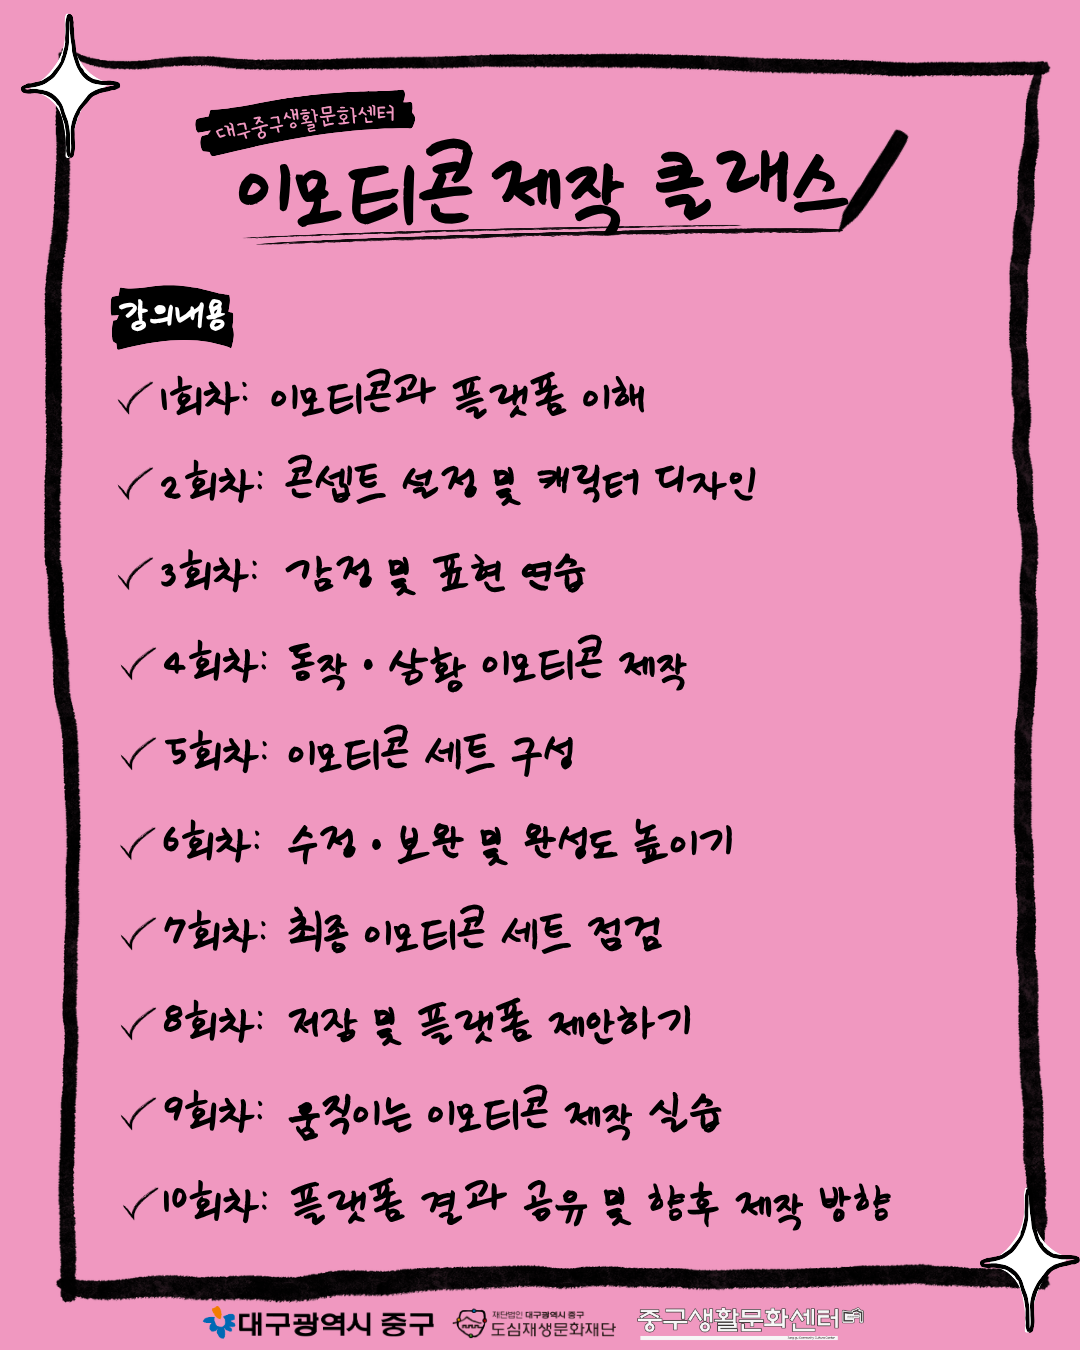 대구중구생활문화센터
이모티콘 제작 클래스
강의내용
1회차: 이모티콘과 플랫폼 이해
2회차: 콘셉트 설정 및 캐릭터 디자인
3회차: 감정 및 표현 연습
4회차: 동작·상황 이모티콘 제작
5회차: 이모티콘 세트 구성
6회차: 수정·보완 및 완성도 높이기
7회차: 최종 이모티콘 세트 점검
8회차: 저장 및 플랫폼 제안하기
9회차: 움직이는 이모티콘 제작 실습
10회차: 플랫폼 결과 공유 및 향후 제작 방향
대구광역시 중구
재단법인 대구광역시 중구
도심재생문화재단
중구생활문화센터